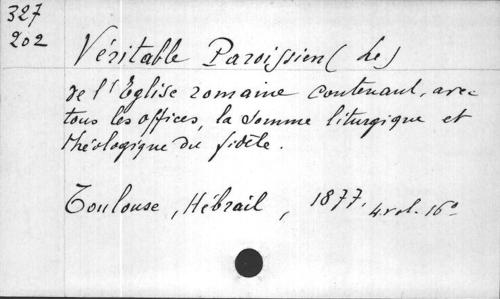 327
202
Véritable Paroissien (Le)
de l'Eglise romaine contenant, avec
tous les offices, la somme liturgique et
théologique du fidèle.
Toulouse, Hébrail, 1877, 4 vol. 16°